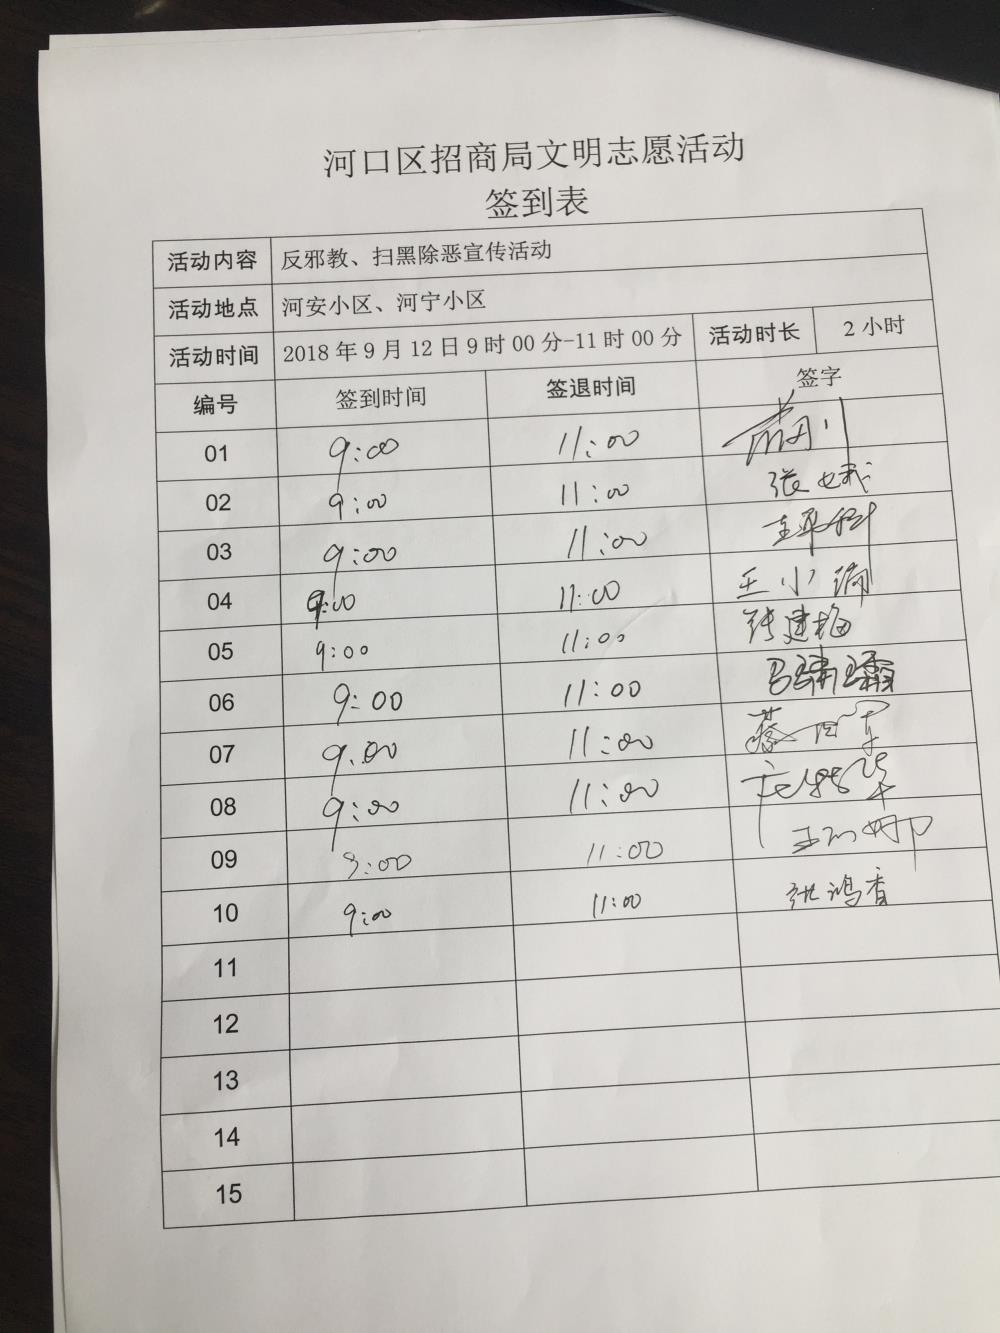 河口区招商局文明志愿活动
签到表
活动内容 反邪教、扫黑除恶宣传活动
活动地点 河安小区、河宁小区
活动时间 2018年9月12日9时00分-11时00分 活动时长 2小时
编号 签到时间 签退时间 签字
01 9:00 11:00
02 9:00 11:00 张
03 9:00 11:00
04 9:00 11:00 王小
05 9:00 11:00 张建梅
06 9:00 11:00 马
07 9:00 11:00
08 9:00 11:00
09 9:00 11:00 王 娜
10 9:00 11:00 张鸿香
11
12
13
14
15